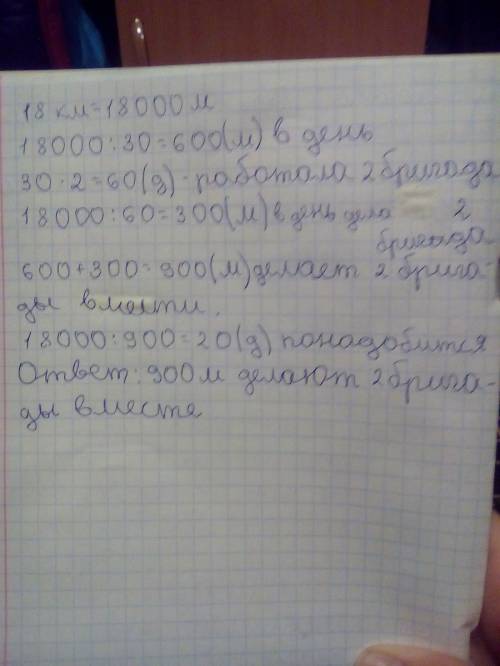 18 км=18000м
18000:30=600(м) в день
30·2=60(д)-работала 2 бригада
18000:60=300(м) в день дела 2
бригада
600+300=900(м) делает 2 брига-
ды вмести.
18000:900=20(д) понадобится
Ответ: 900м делают 2 брига-
ды вместе